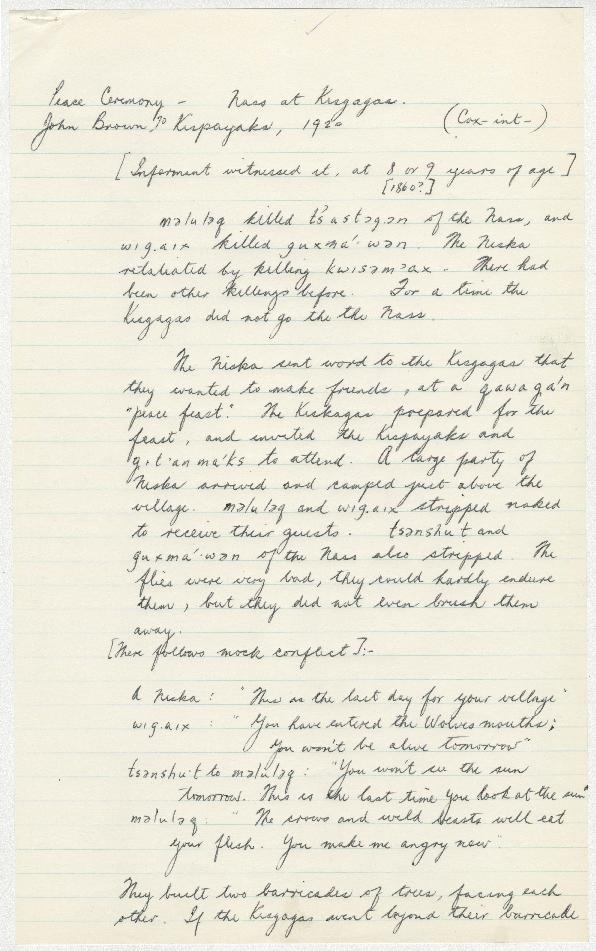 Peace Ceremony - Nass at Kisgagas.
John Brown, Kispayaks, 1920 (Cox-int-)
[Informant witnessed it, at 8 or 9 years of age]
[1860?]
məlulaq killed ts'astəgən of the Nass, and
wig.aix killed guxma'·wən. The Niska
retaliated by killing kwisəmɔax. There had
been other killings before. For a time the
Kisgagas did not go the the Nass.
The Niska sent word to the Kisgagas that
they wanted to make friends, at a gawaga'n
"peace feast". The Kiskagas prepared for the
feast, and invited the Kispayaks and
g.it'anma'ks to attend. A large party of
Niska arrived and camped just above the
village. məlulaq and wig.aix stripped naked
to receive their guests. tsənshu't and
guxma'·wən of the Nass also stripped. The
flies were very bad, they could hardly endure
them, but they did not even brush them
away.
[There follows mock conflict]:-
A Niska: "This is the last day for your village"
wig.aix : "You have entered the Wolves mouths;
You won't be alive tomorrow"
tsənshu't to məlulaq: "You won't see the sun
tomorrow. This is the last time you look at the sun"
məlulaq: "The crows and wild beasts will eat
your flesh. You make me angry now".
They built two barricades of trees, facing each
other. If the Kisgagas went beyond their barricade